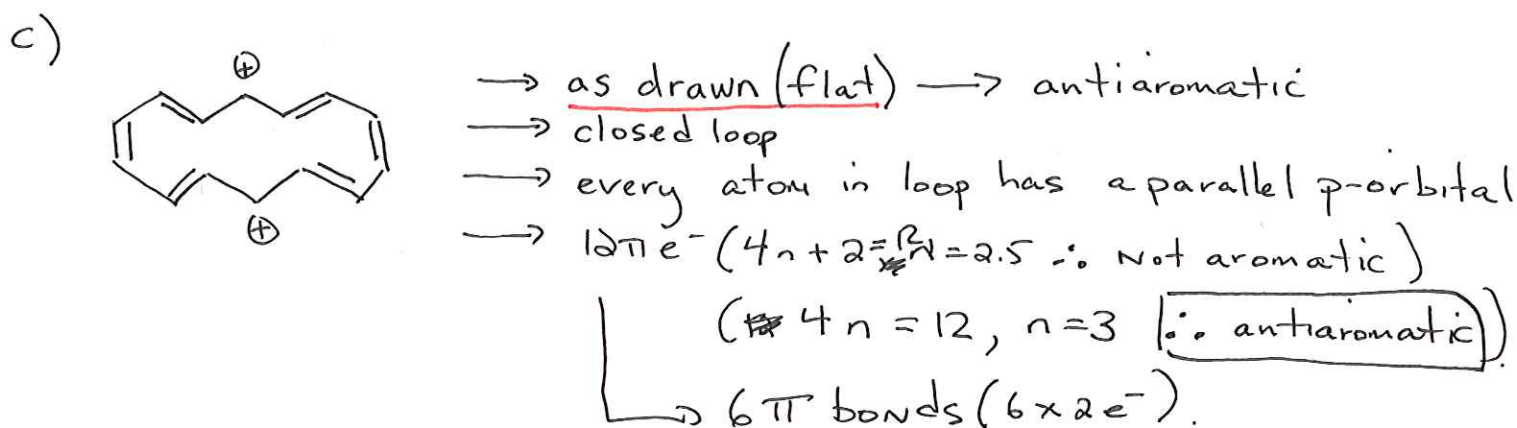 c)
⊕
→ as drawn (flat) → antiaromatic
→ closed loop
→ every atom in loop has a parallel p-orbital
→ 12π e⁻ (4n + 2 = 12 = 2.5 ∴ Not aromatic)
( 4n = 12, n = 3 ∴ antiaromatic)
↳ 6 π bonds (6 × 2e⁻).
⊕